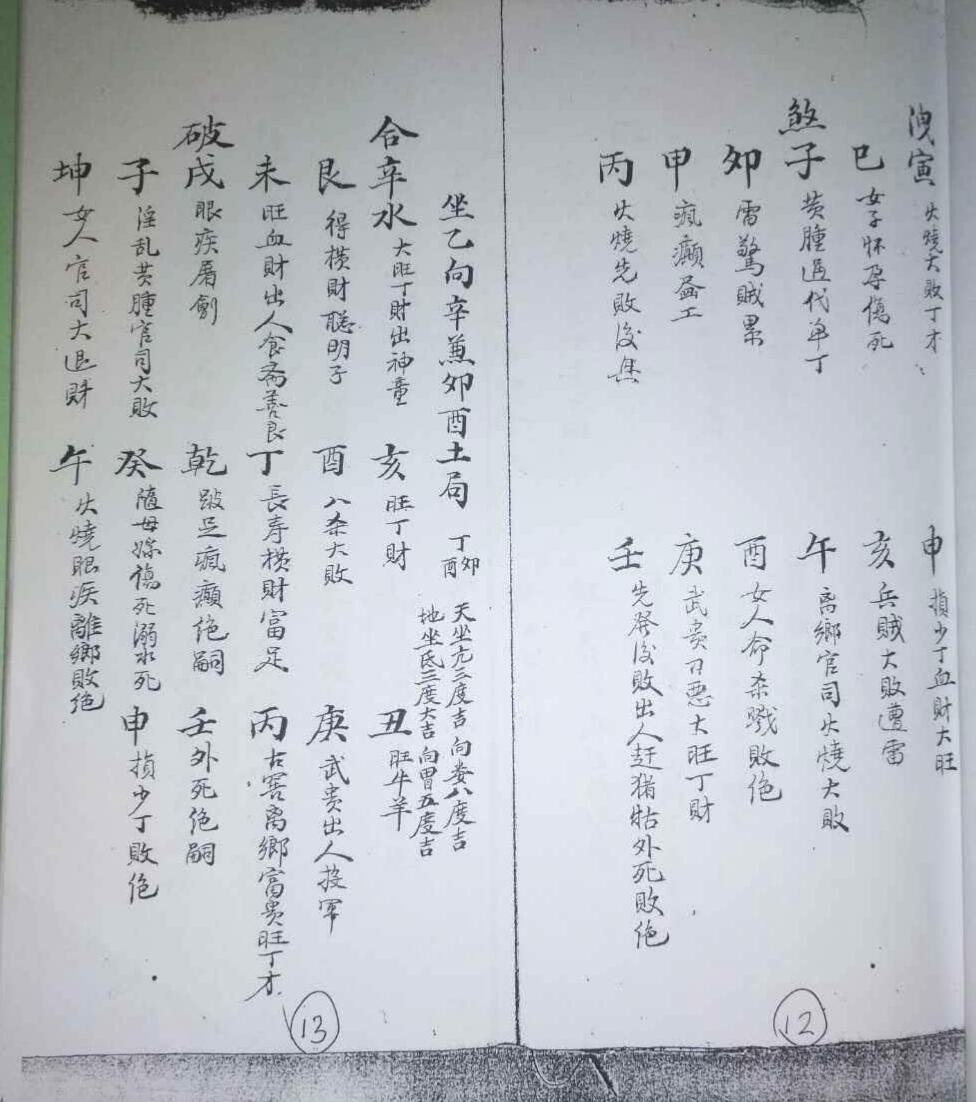 洩寅 火燒大敗丁才 申 損少丁血財大旺
巳 女子怀孕傷死 亥 兵賊大敗遭雷
煞子 黃腫過代單丁 午 离鄉官司火燒大敗
卯 雷驚賊累 酉 女人命杀戰敗绝
甲 瘋癲 庚 武贵刁恶大旺丁財
丙 火燒先敗後 壬 先發後敗出人赶猪牯外死敗绝
12
坐乙向辛兼卯酉土局 丁卯 丁酉 天坐亢三度吉向娄八度吉
地坐氐三度大吉向胃五度吉
合辛水 大旺丁財出神童 亥 旺丁財 丑 旺牛羊
艮 得横財聪明子 酉 八杀大敗 庚 武贵出人投军
未 旺血財出人食斋善良 丁 長寿横財富足 丙 离鄉富贵旺丁才
破戌 眼疾屠劊 乾 跛足瘋癲绝嗣 壬 外死绝嗣
子 淫乱黃腫官司大敗 癸 隨母嫁傷死溺水死 申 損少丁敗绝
坤 女人官司大退財 午 火燒眼疾離鄉敗绝
13